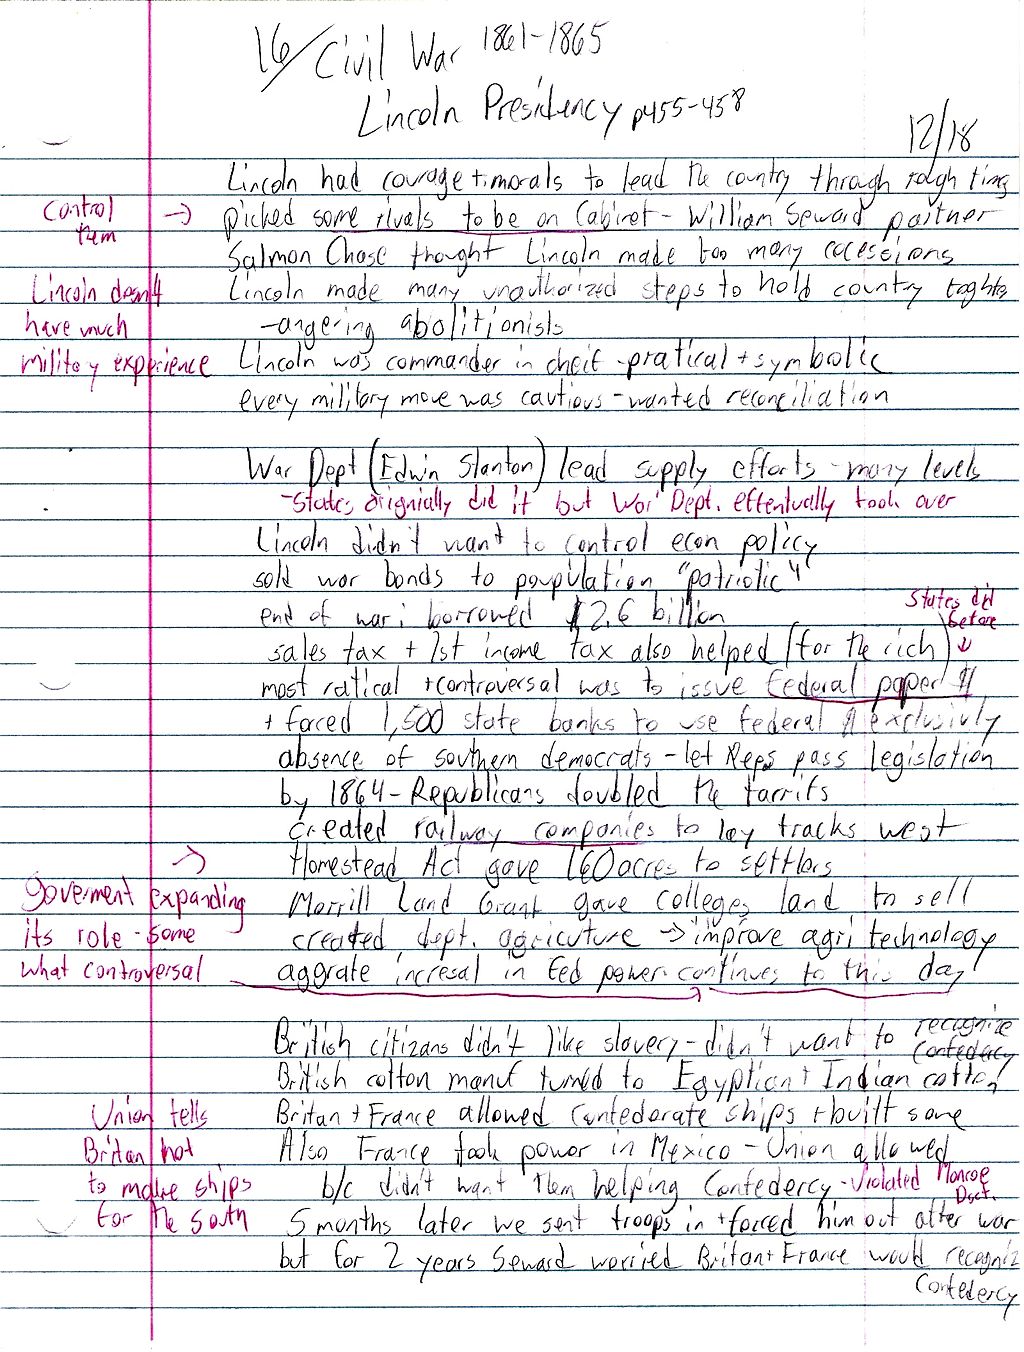 16/ Civil War 1861-1865
Lincoln Presidency p455-458
12/18
Lincoln had courage + morals to lead the country through rough times
Control them →
picked some rivals to be on Cabinet - William Seward partner
Salmon Chase thought Lincoln made too many cocessions
Lincoln doesn't have much military experience
Lincoln made many unauthorized steps to hold country
-angering abolitionists
Lincoln was commander in cheif - pratical + symbolic
every military move was cautious - wanted reconciliation
War Dept (Edwin Stanton) lead supply efforts - many levels
-States origninally did it but War Dept. effentually took over
Lincoln didn't want to control econ policy
sold war bonds to poupulation "patriotic"
end of war: borrowed $2.6 billion
States did before ↓
sales tax + 1st income tax also helped (for the rich)
most ratical + controversal was to issue federal paper $
+ forced 1,500 state banks to use federal $ exclusivly
absence of southern democrats - let Reps pass legislation
by 1864 - Republicans doubled the tarrifs
created railway companies to lay tracks west
→
Homestead Act gave 160 acres to settlors
Goverment expanding its role - some what controversal
Morrill Land Grant gave colleges land to sell
created dept. agricuture → improve agri technology
aggrate incresal in Fed power continues to this day!
British citizans didn't like slavery - didn't want to recognize Confedercy
British cotton manuf turned to Egyptian + Indian cotton
Union tells Britan not to make ships for the South
Britan + France allowed Confederate ships + built some
Also France took power in Mexico - Union allowed
b/c didn't want them helping Confedercy - violated Monroe Doct.
5 months later we sent troops in + forced him out after war
but for 2 years Seward worried Britan + France would recogniz
Confedercy